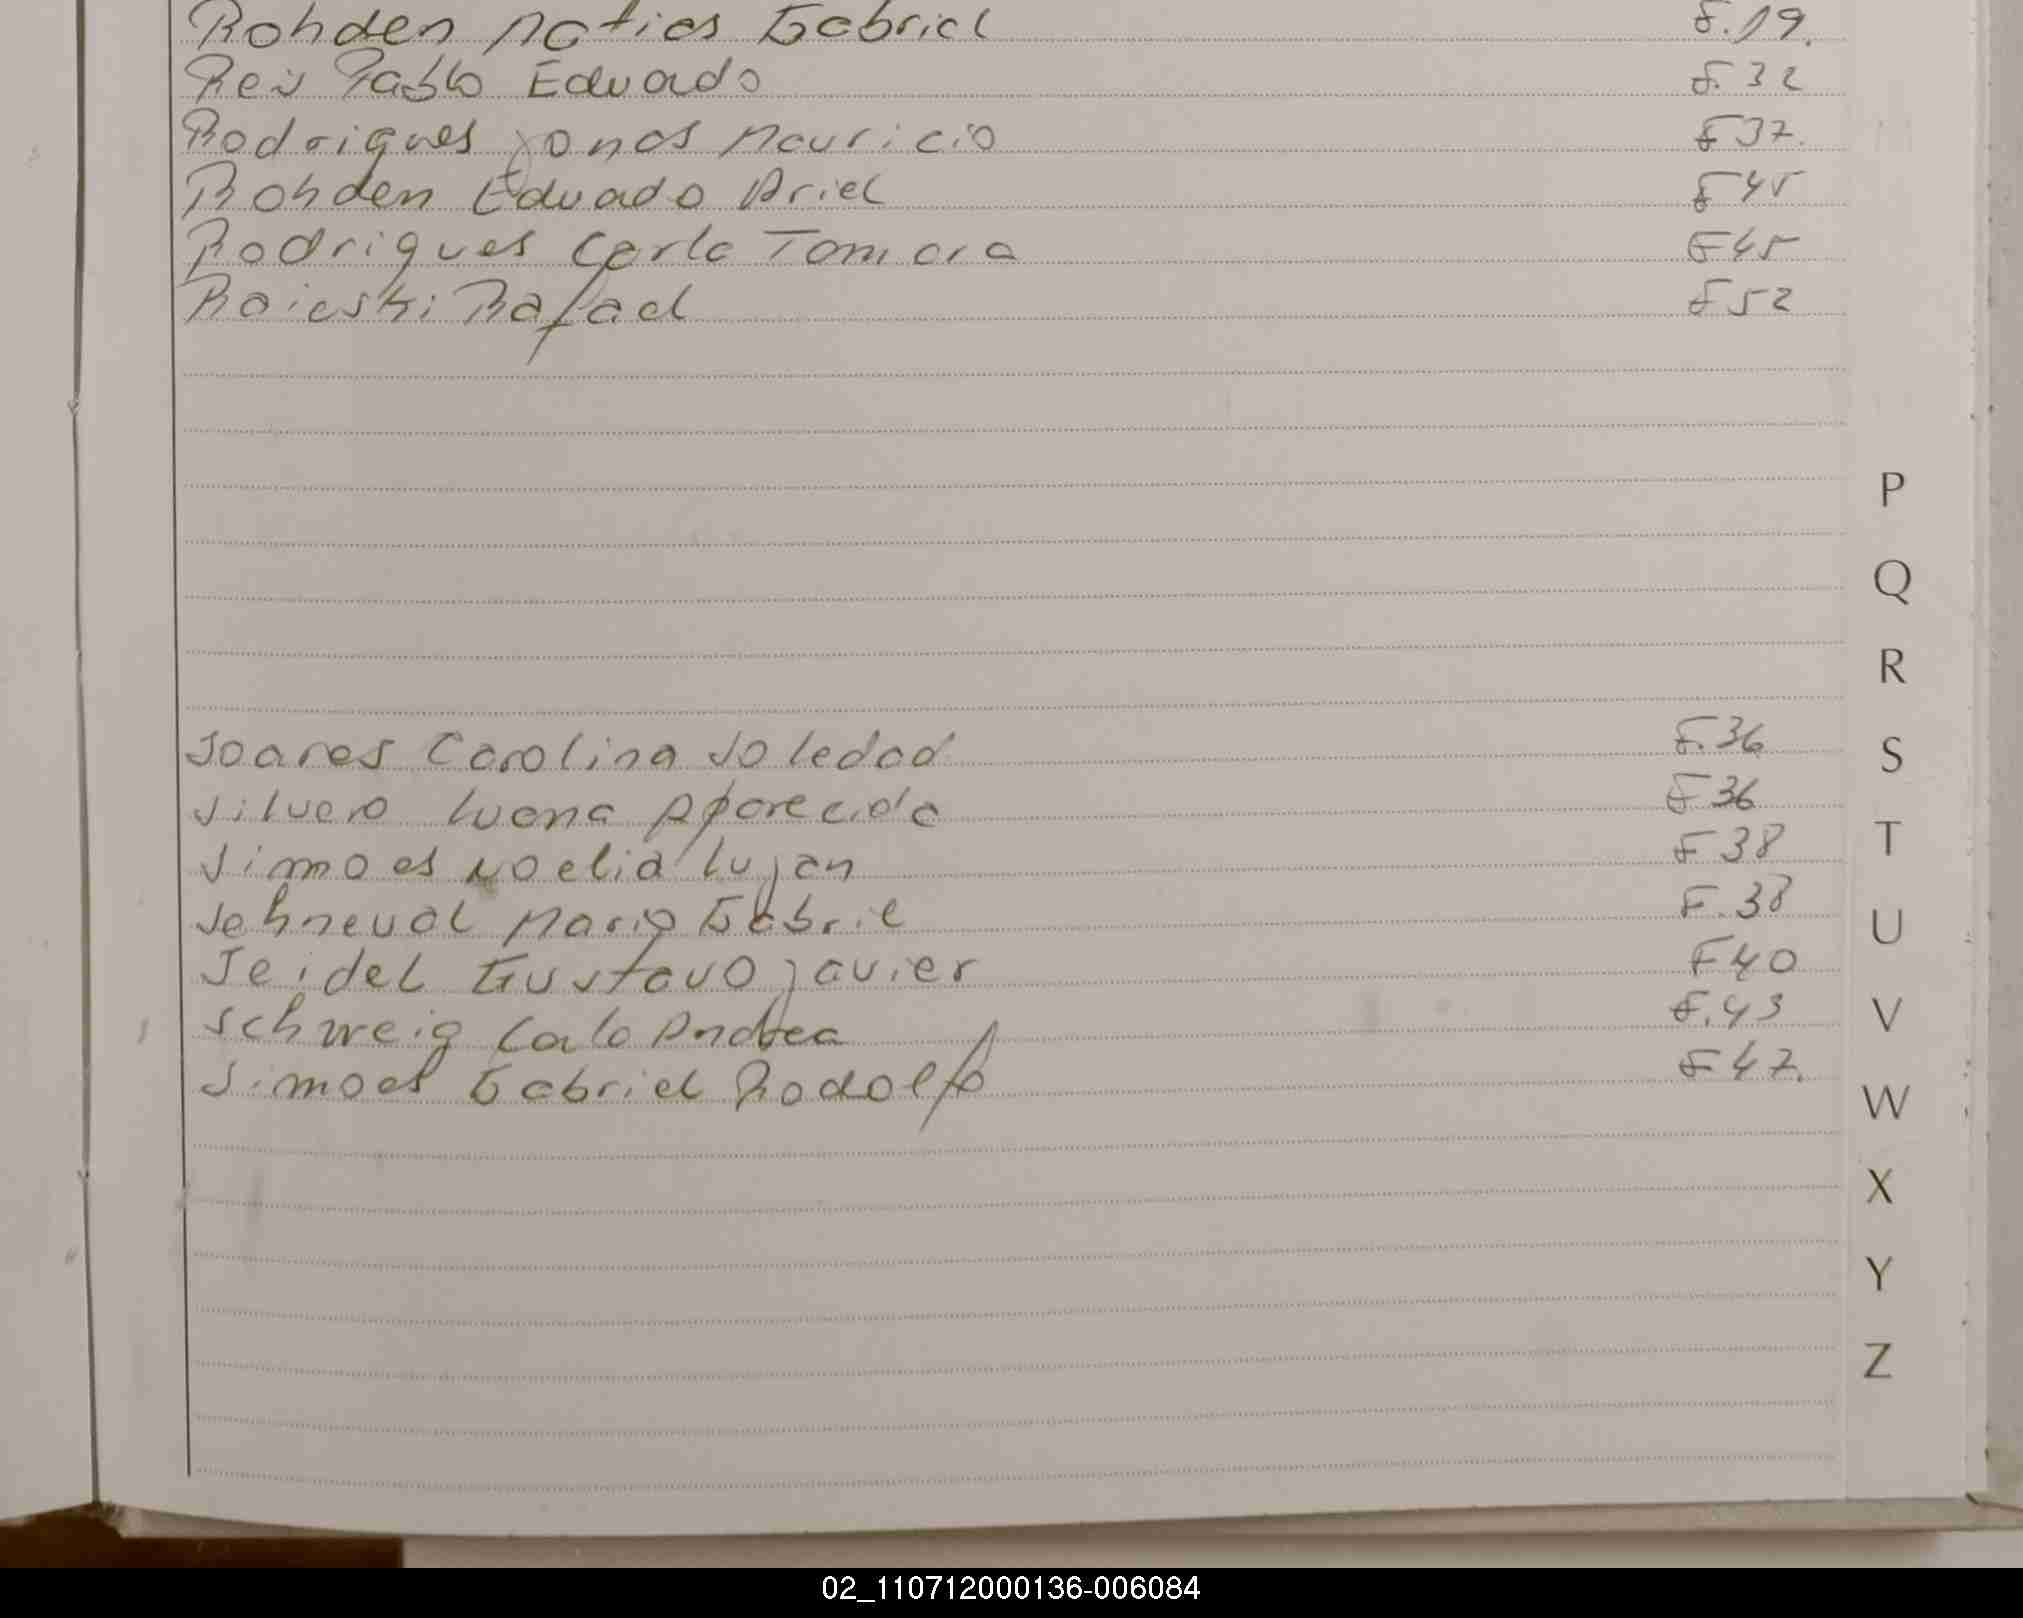 Rohden Matias Gabriel F.19.
Reis Pablo Eduardo F.32
Rodrigues Jonas Mauricio F37.
Rohden Eduado Ariel F45
Rodrigues Carla Tamara F45
Raieski Rafael F52
P
Q
R
Soares Carolina Soledad F.36
S
Silvero Luana Aparecida F36
Simoes Noelia Lujan F38
T
Schneval Mario Gabril F.38
U
Seidel Gustavo Javier F40
Schweig Carla Andrea F.43
V
Simoes Gabriel Rodolfo F47.
W
X
Y
Z
02_110712000136-006084